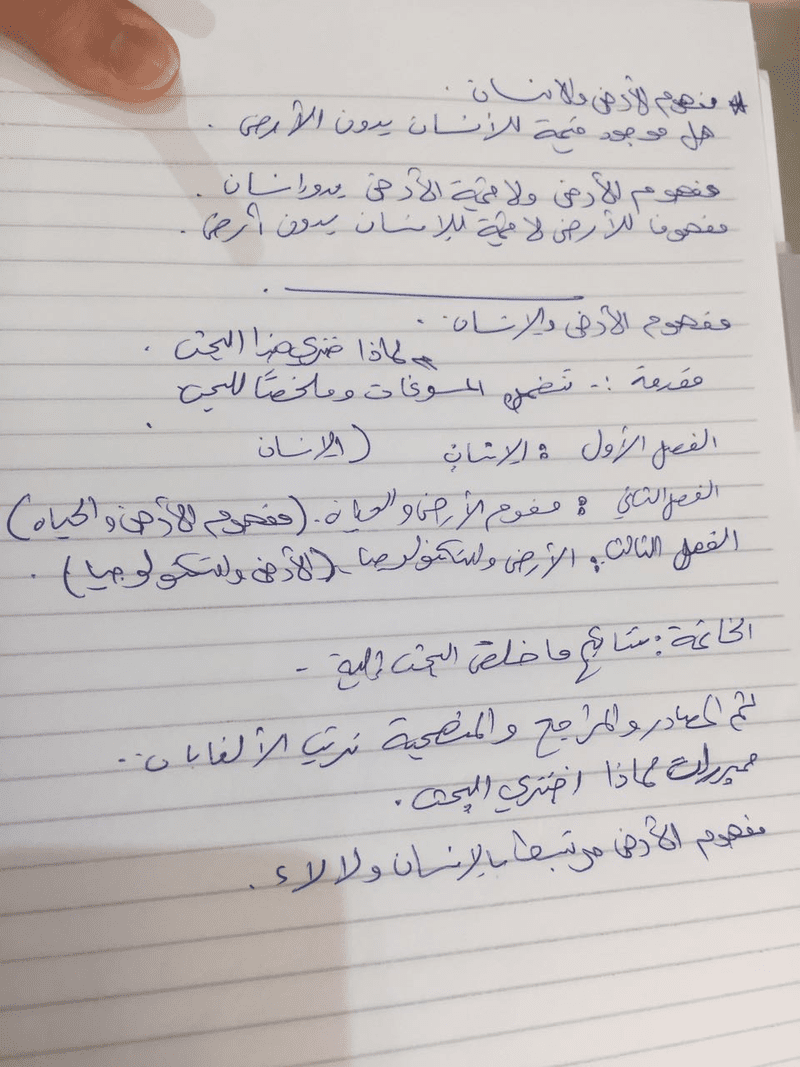 * مفهوم الأرض والانسان .
هل موجود قيمة للأنسان بدون الأرض .
مفهوم للأرض ولا قيمة الأرض بدو انسان .
مفهوما للأرض لا قيمة للإنسان بدون أرض .
مفهوم الأرض والإنسان ..
لماذا اختري هذا البحث .
مقدمة :- تتضمن المسوغات وملخصاً للبحث .
الفصل الأول : الإنسان (الإنسان
الفصل الثاني : مفهوم الأرض والحياة . (مفهوم الأرض والحياه)
الفصل الثالث : الأرض والتكنولوجيا . (الأرض والتكنولوجيا) .
الخاتمة : نتائج ما خلص البحث إليه -
ثم المصادر والمراجع والمنهجية ترتيب الألفابات ..
مبررات لماذا اختري البحث .
مفهوم الأرض مرتبط بالإنسان ولا